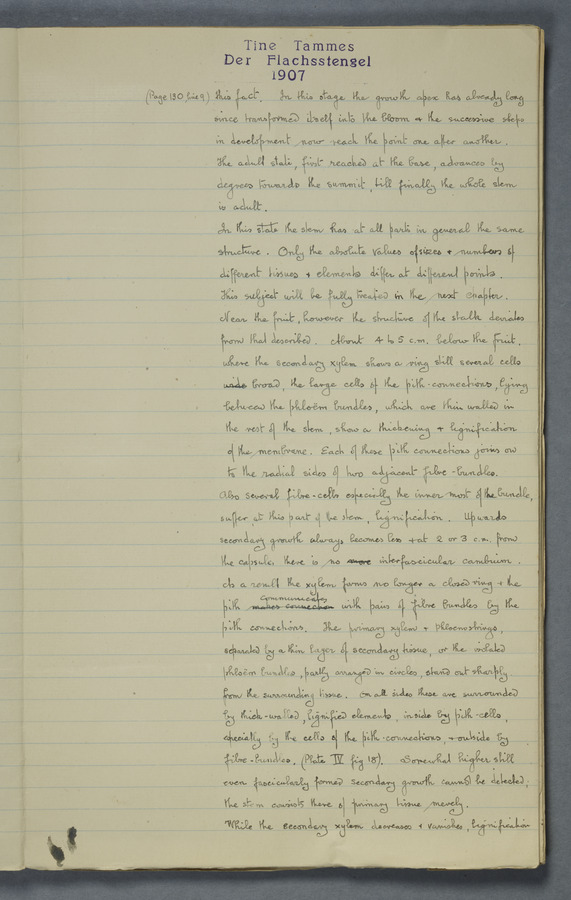 Tine Tammes
Der Flachsstengel
1907
(Page 130, line 9) this fact. In this stage the growth apex has already long
since transformed itself into the bloom & the successive steps
in development now reach the point one after another.
The adult state, first reached at the base, advances by
degrees towards the summit, till finally the whole stem
is adult.
In this state the stem has at all parts in general the same
structure. Only the absolute values of sizes & numbers of
different tissues & elements differ at different points.
This subject will be fully treated in the next chapter.
Near the fruit, however the structure of the stalk deviates
from that described. About 4 to 5 c.m. below the fruit,
where the secondary xylem shows a ring still several cells
wide broad, the large cells of the pith-connections, lying
between the phloëm bundles, which are thin walled in
the rest of the stem, show a thickening & lignification
of the membrane. Each of these pith connections joins on
to the radial sides of two adjacent fibre-bundles.
Also several fibre-cells especially the inner most of the bundle,
suffer at this part of the stem, lignification. Upwards
secondary growth always becomes less & at 2 or 3 c.m. from
the capsule, there is no more interfascicular cambium.
As a result the xylem forms no longer a closed ring & the
communicates
pith makes connection with pairs of fibre bundles by the
pith connections. The primary xylem & phloemstrings,
separated by a thin layer of secondary tissue, or the isolated
phloëm bundles, partly arranged in circles, stand out sharply
from the surrounding tissue. On all sides these are surrounded
by thick-walled, lignified elements, inside by pith-cells,
especially by the cells of the pith-connections, & outside by
fibre-bundles. (Plate IV fig 18). Somewhat higher still
even fascicularly formed secondary growth cannot be detected;
the stem consists there of primary tissue merely.
While the secondary xylem decreases & vanishes, lignification